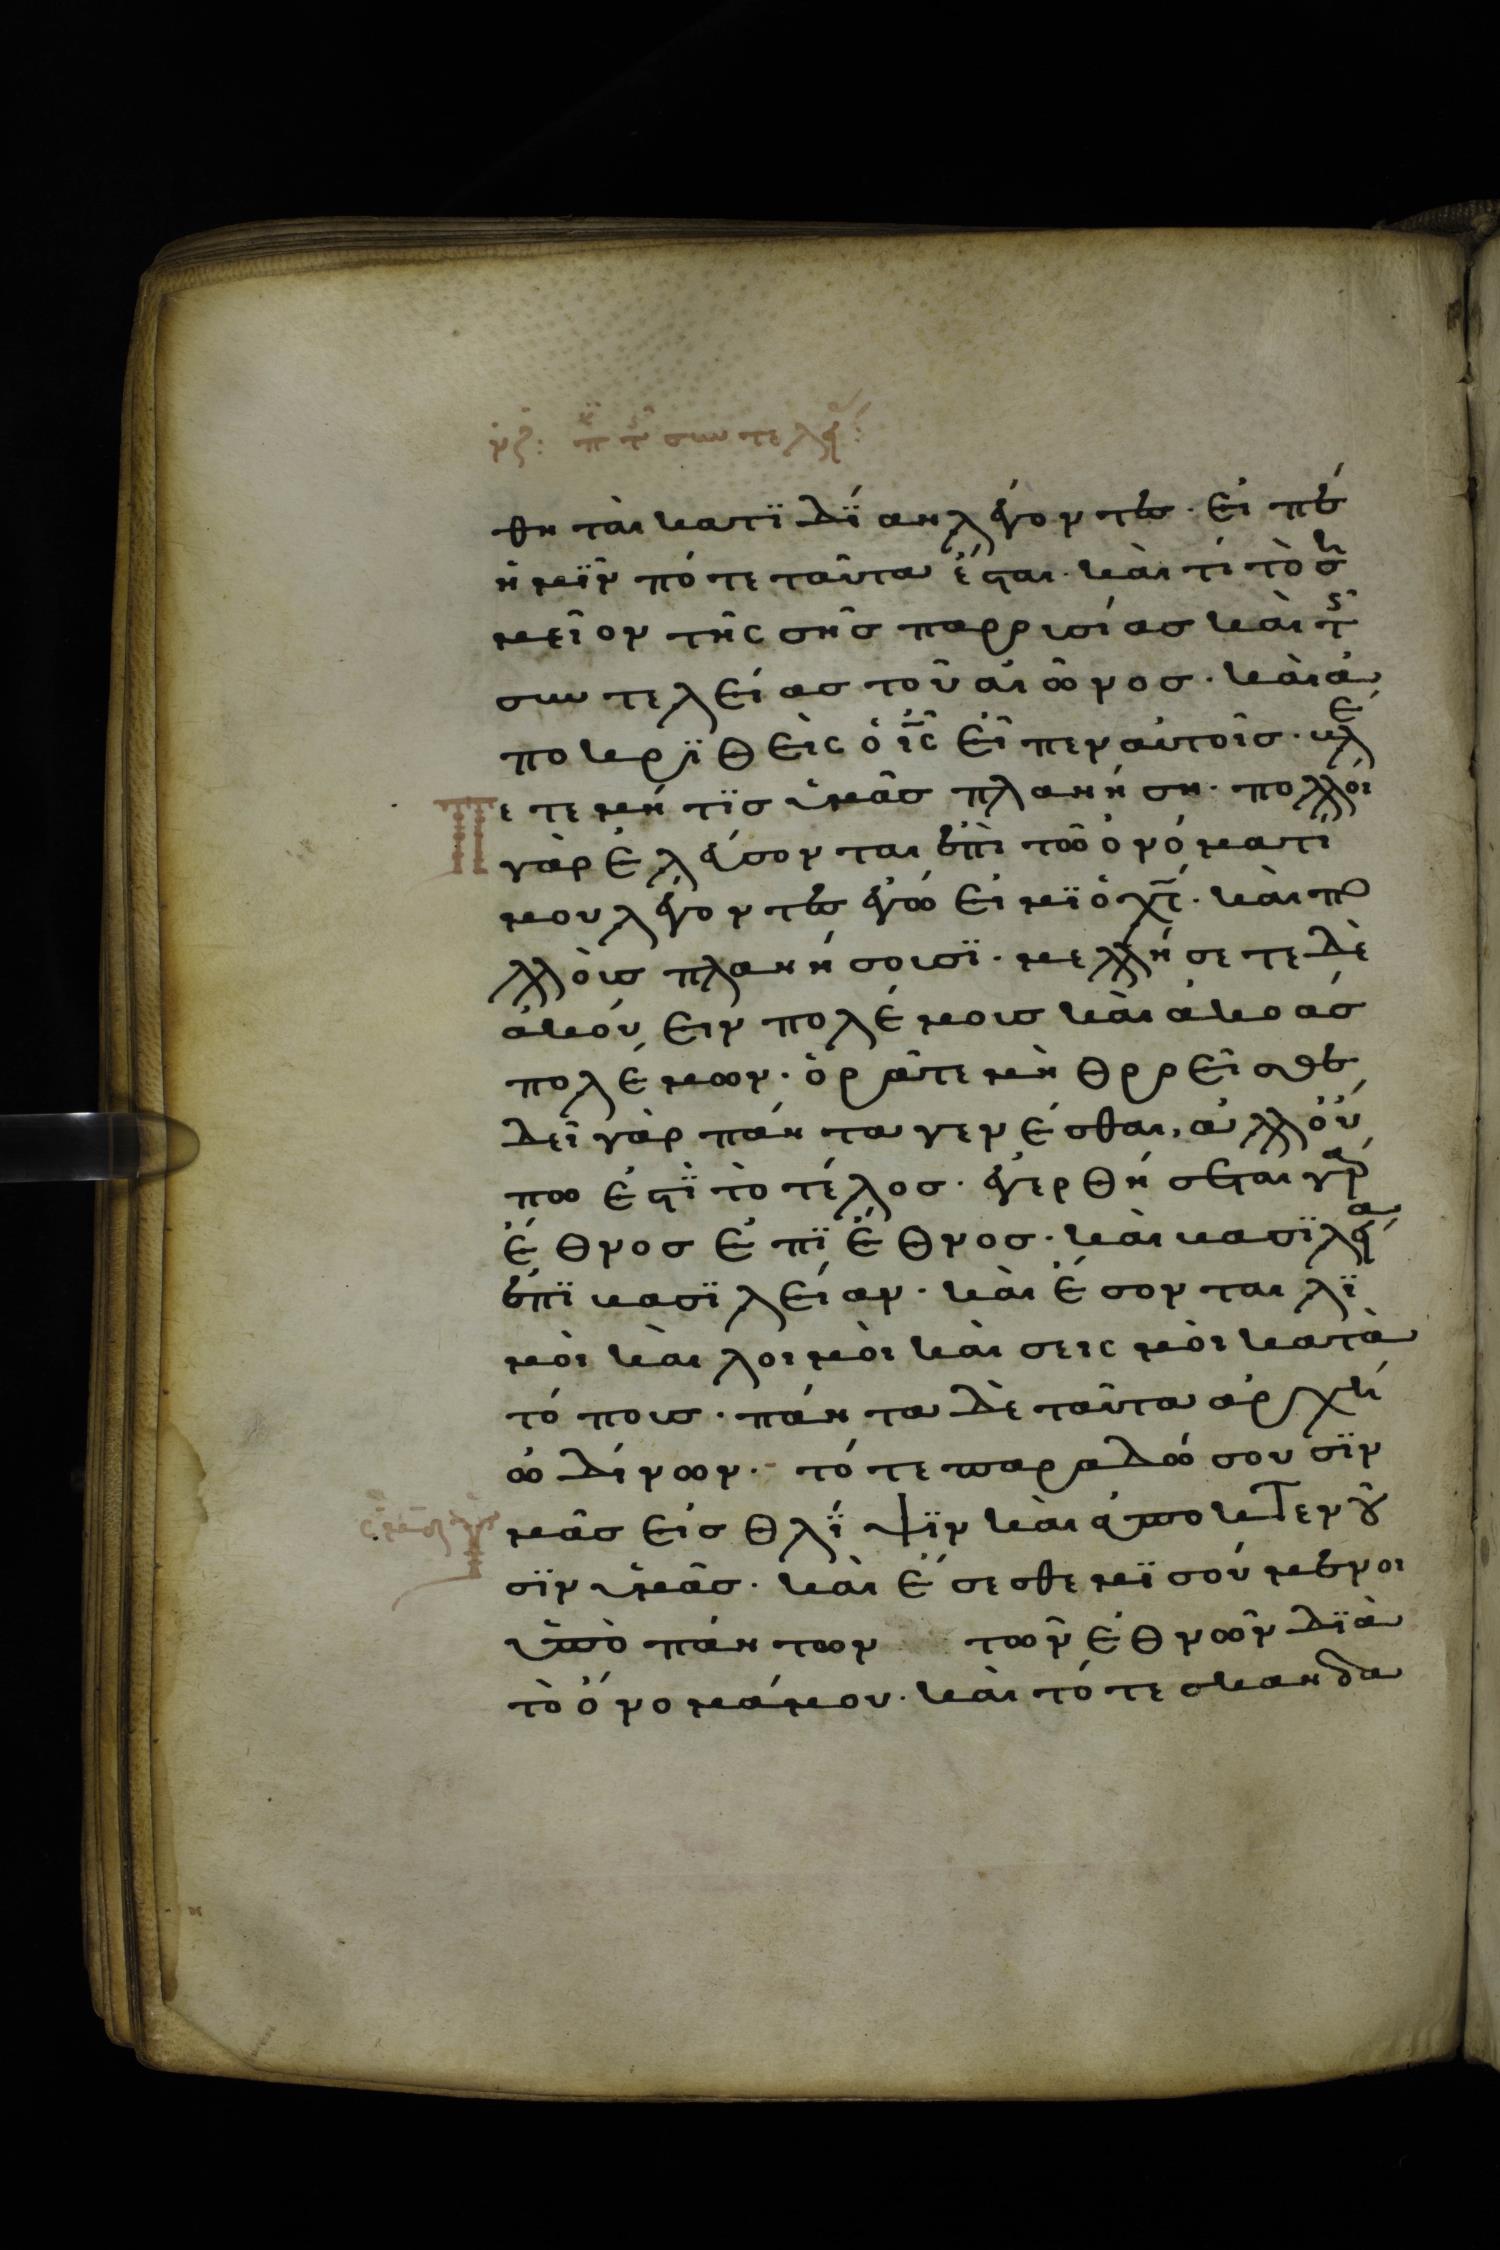 νζ: περὶ τῆς συντελείας:
θηταὶ κατϊδΐαν λέγοντες· εἰπὲ
ἡμῖν πότε ταῦτα ἔσται· καὶ τί τὸ ση
μεῖον τῆς σῆς παρρουσίας καὶ τῆς
συντελείας τοῦ αἰῶνος· καὶ ἀ
ποκρϊθεὶς ὁ ις εἶπεν αὐτοῖς· βλέ
πετε μή τϊς ὑμᾶς πλανήση· πολλοί
γὰρ ἐλεύσονται ἐπὶ τῶ ὀνόματί
μου λέγοντες ἐγώ εἰμϊ ὁ χς· καὶ πο
λλοὺς πλανήσουσϊ· μελλήσετε δὲ
ἀκούειν πολέμους καὶ ἀκοάς
πολέμων· ὁρᾶτε μὴ θρρεῖσθε
δεῖ γὰρ πάντα γενέσθαι, ἀλλ οὔ
πω ἐστϊ τὸ τέλος· ἐγερθήσεται γὰρ
ἔθνος ἐπϊ ἔθνος· καὶ βασϊλεία
ἐπϊ βασϊλείαν· καὶ ἔσονται λϊ
μὸι καὶ λοιμὸι καὶ σεισμὸι κατὰ
τόπους· πάντα δὲ ταῦτα ἀρχή
ὠδίνων· τότε παραδώσουσϊν
ὑμᾶς εἰς θλΐψϊν καὶ ἀποκτενοῦ
σϊν ὑμᾶς· καὶ ἔσεσθε μϊσούμενοι
ὑπὸ πάντων τῶν ἐθνῶν δϊὰ
τὸ ὄνομά μου· καὶ τότε σκανδα